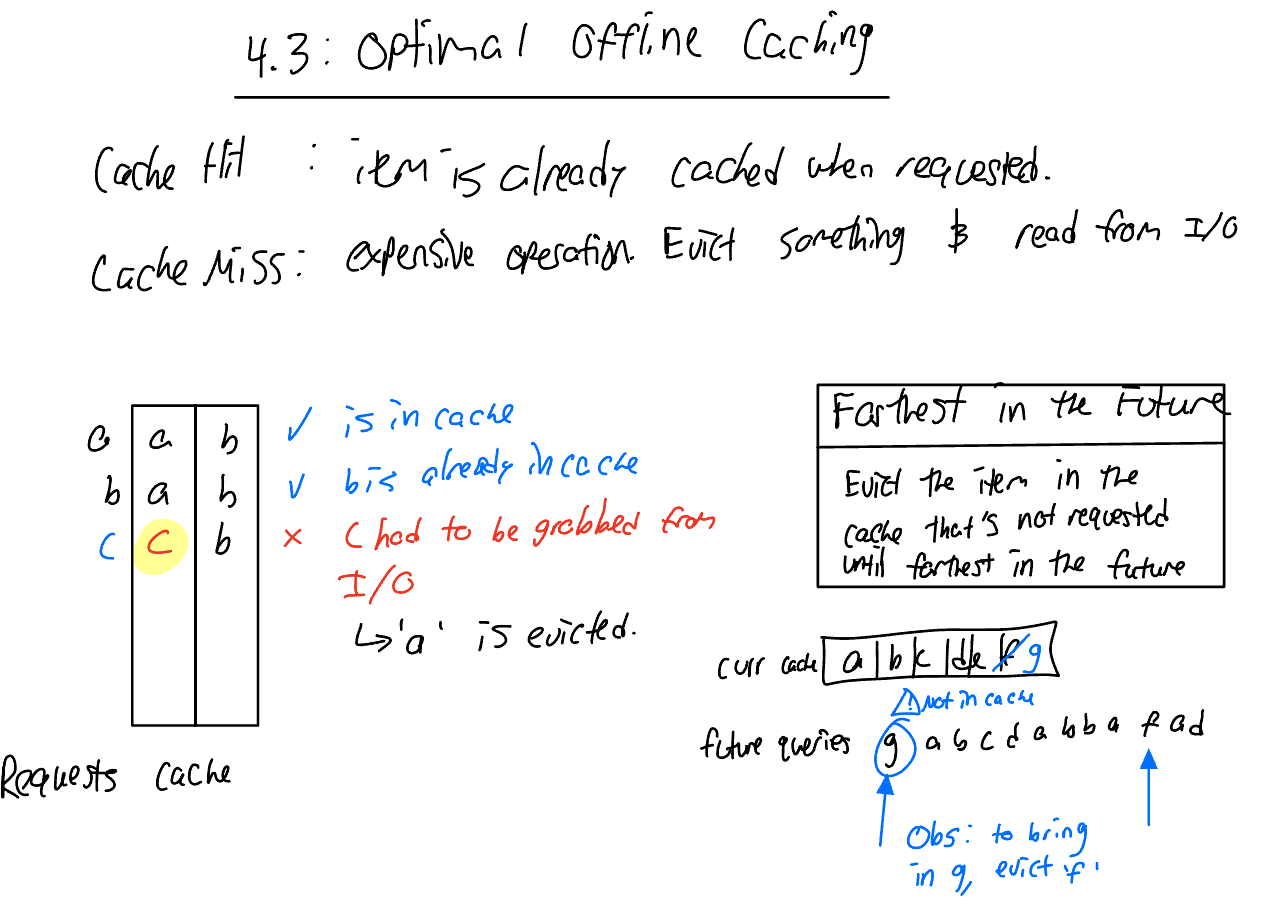 4.3: Optimal Offline Caching
Cache Hit : item is already cached when requested.
Cache Miss: expensive operation. Evict something & read from I/O
a a b ✓ is in cache
b a b ✓ b is already in cache
c c b × C had to be grabbed from
I/O
↳ 'a' is evicted.
Requests cache
Farthest in the Future
Evict the item in the
cache that's not requested
until farthest in the future
curr cache a | b | c | d | e f g
⚠ Not in cache
future queries g a b c d a b b a f a d
Obs: to bring
in g, evict 'f'